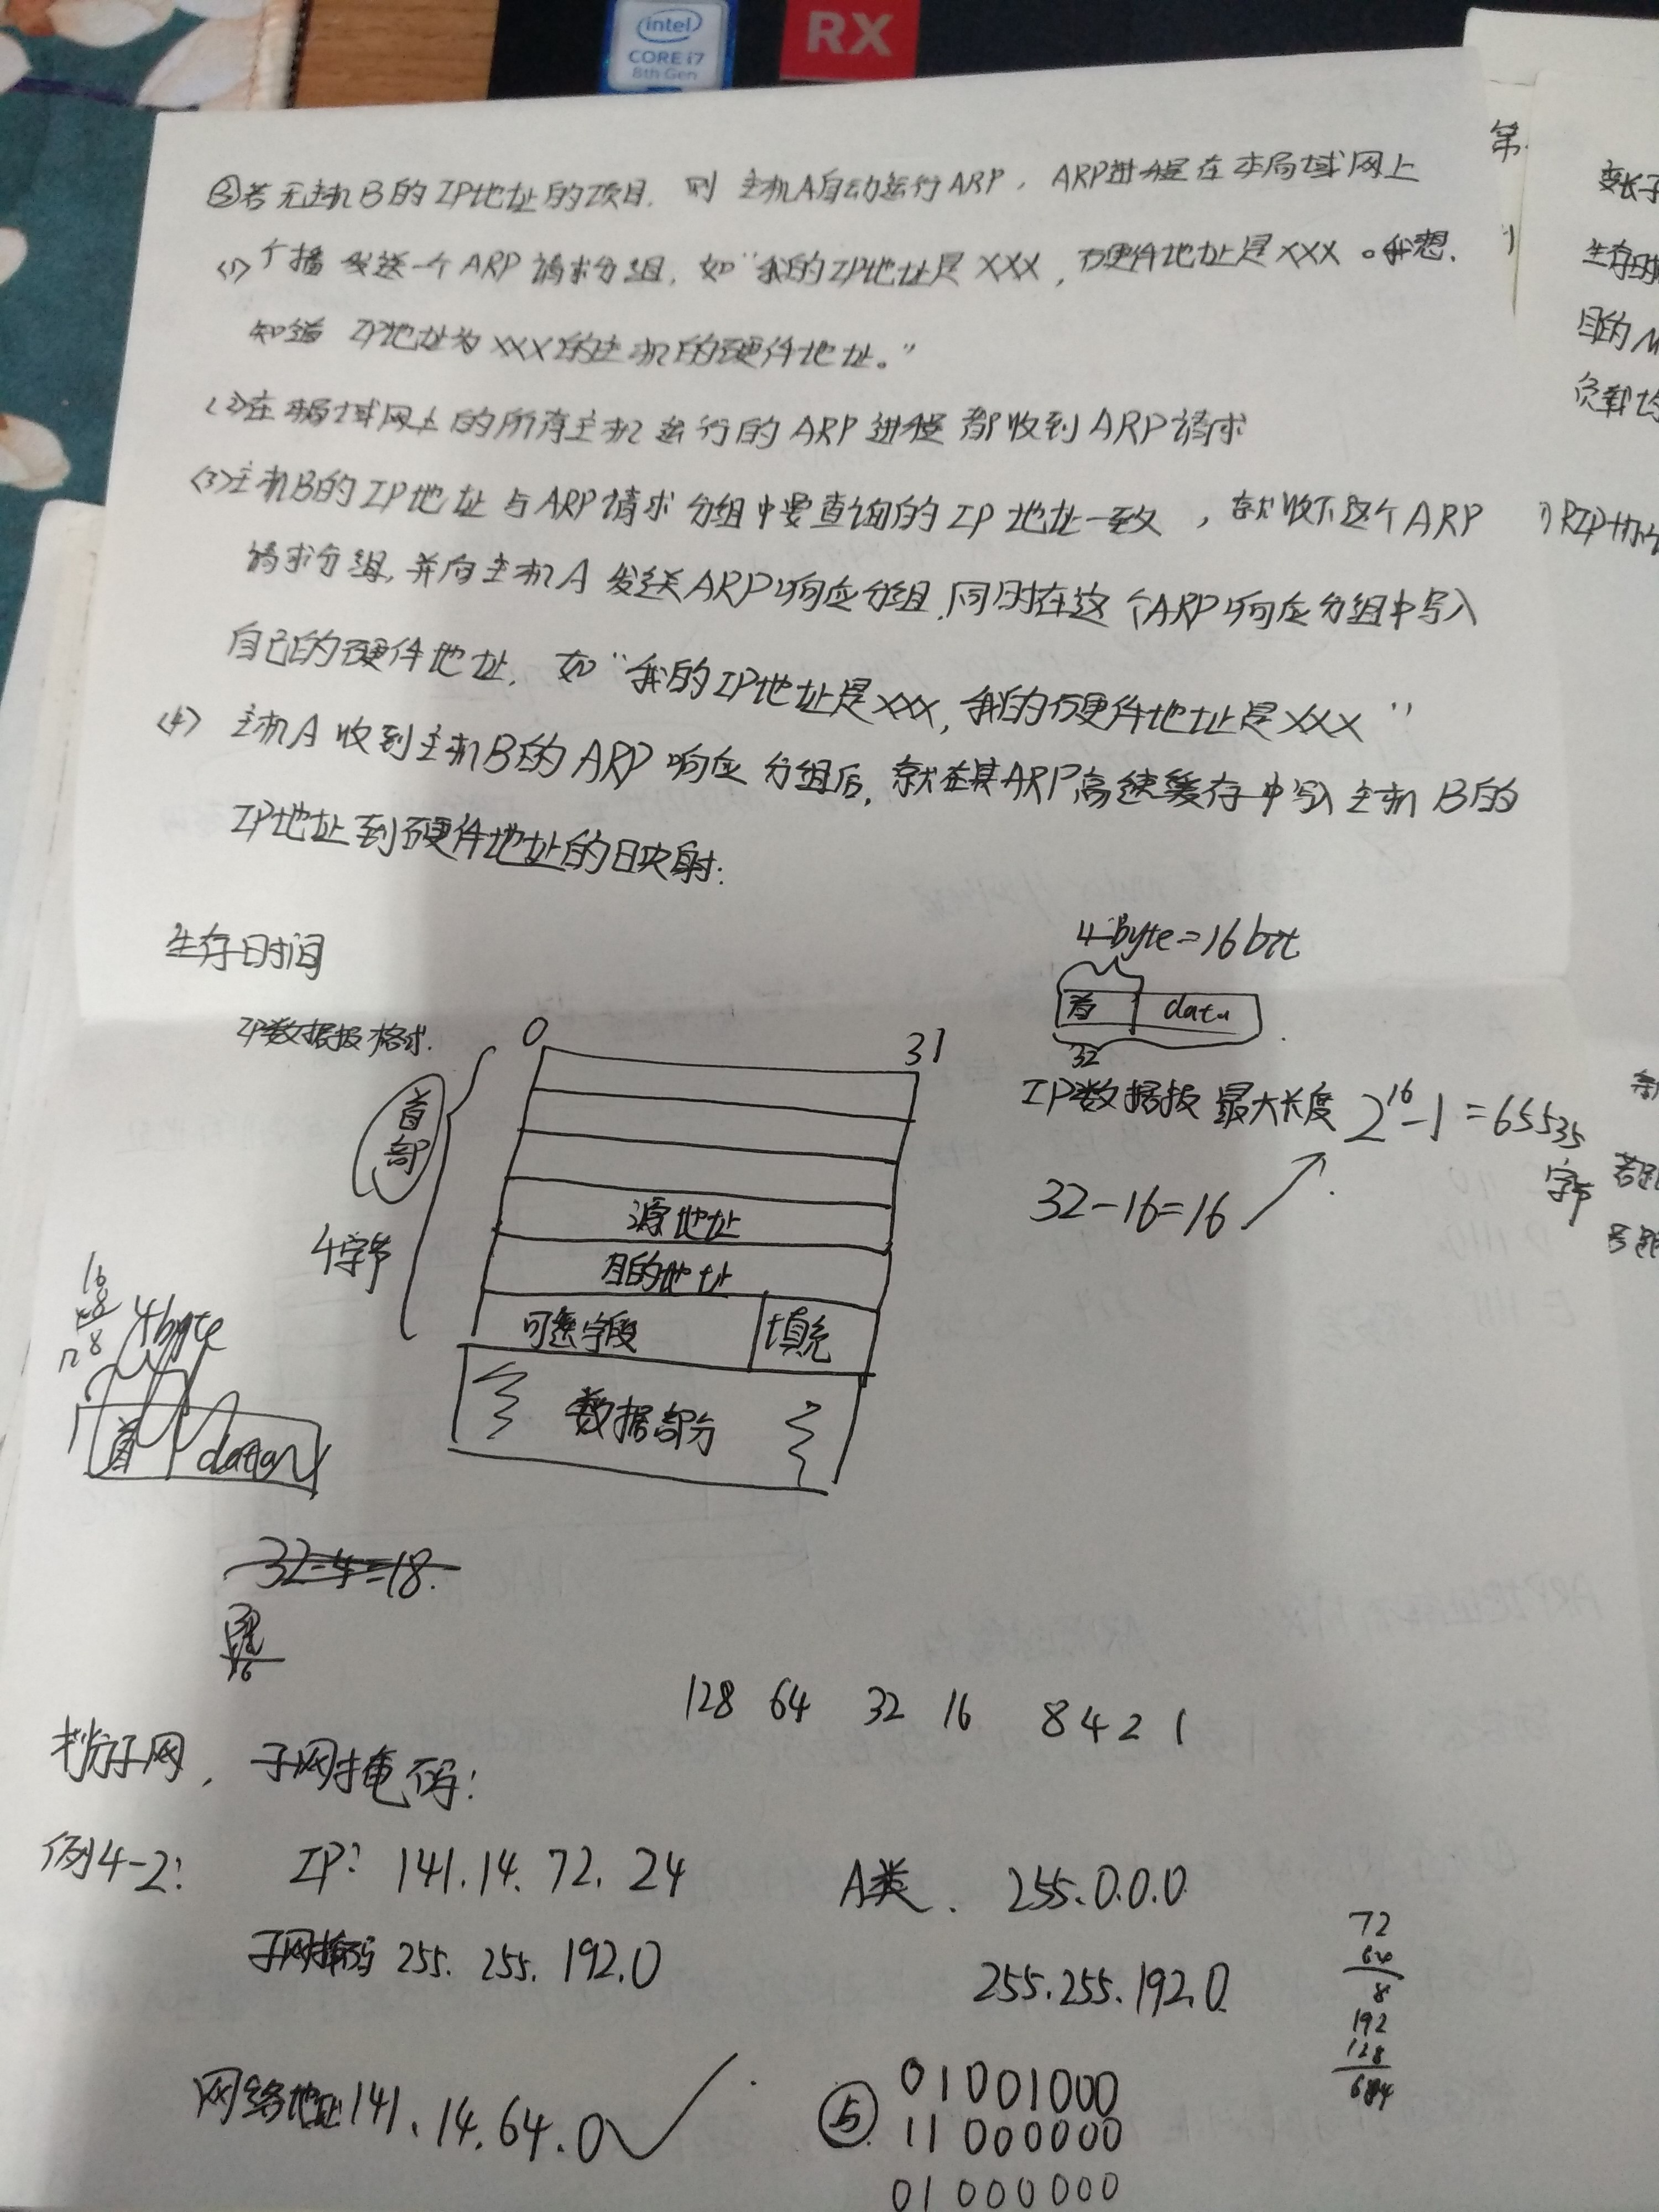 intel
CORE i7
8th Gen
RX
③若无主机B的IP地址的项目. 则 主机A自动运行ARP, ARP进程在本局域网上
<1>广播 发送一个ARP 请求分组, 如“我的IP地址是XXX, 硬件地址是XXX。我想.
知道 IP地址为XXX的主机的硬件地址。”
(2)在本局域网上的所有主机运行的ARP进程都收到ARP请求
<3>主机B的IP地址与ARP请求分组中要查询的IP地址一致, 就收下这个ARP
请求分组, 并向主机A发送ARP响应分组,同时在这个ARP响应分组中写入
自己的硬件地址, 如“我的IP地址是XXX, 我的硬件地址是XXX”
<4> 主机A收到主机B的ARP响应分组后, 就在其ARP高速缓存中写入主机B的
IP地址到硬件地址的映射:
第
变长子
生存时
目的M
负载均
RIP协
生存时间
4byte=16bit
首 data
32
IP数据报格式.
0 31
首部
4字节
源地址
目的地址
可选字段 填充
数据部分
IP数据报最大长度 2^16-1=65535
字节
32-16=16
16
8
128
4byte
首 data
32-4=18.
128 64 32 16 8 4 2 1
划分子网, 子网掩码:
例4-2: IP: 141.14.72.24
A类. 255.0.0.0
子网掩码 255.255.192.0
255.255.192.0
72
64
8
192
128
64
网络地址141.14.64.0✓
与 01001000
11000000
01000000